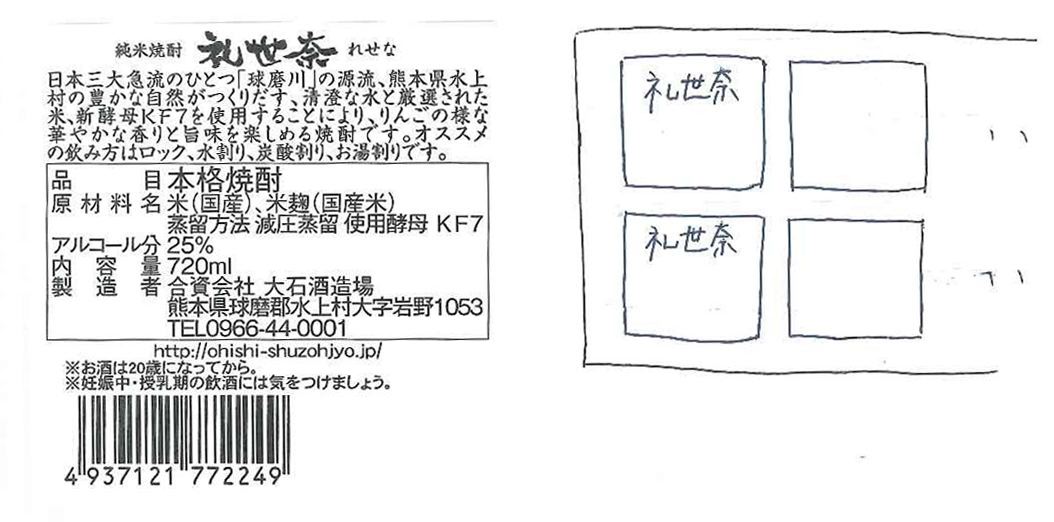 純米焼酎 礼世奈 れせな
日本三大急流のひとつ「球磨川」の源流、熊本県水上
村の豊かな自然がつくりだす、清澄な水と厳選された
米、新酵母KF7を使用することにより、りんごの様な
華やかな香りと旨味を楽しめる焼酎です。オススメ
の飲み方はロック、水割り、炭酸割り、お湯割りです。
品目 本格焼酎
原材料名 米(国産)、米麹(国産米)
蒸留方法 減圧蒸留 使用酵母 KF7
アルコール分 25%
内容量 720ml
製造者 合資会社 大石酒造場
熊本県球磨郡水上村大字岩野1053
TEL0966-44-0001
http://ohishi-shuzohjyo.jp/
※お酒は20歳になってから。
※妊娠中・授乳期の飲酒には気をつけましょう。
4 937121 772249
礼世奈
礼世奈